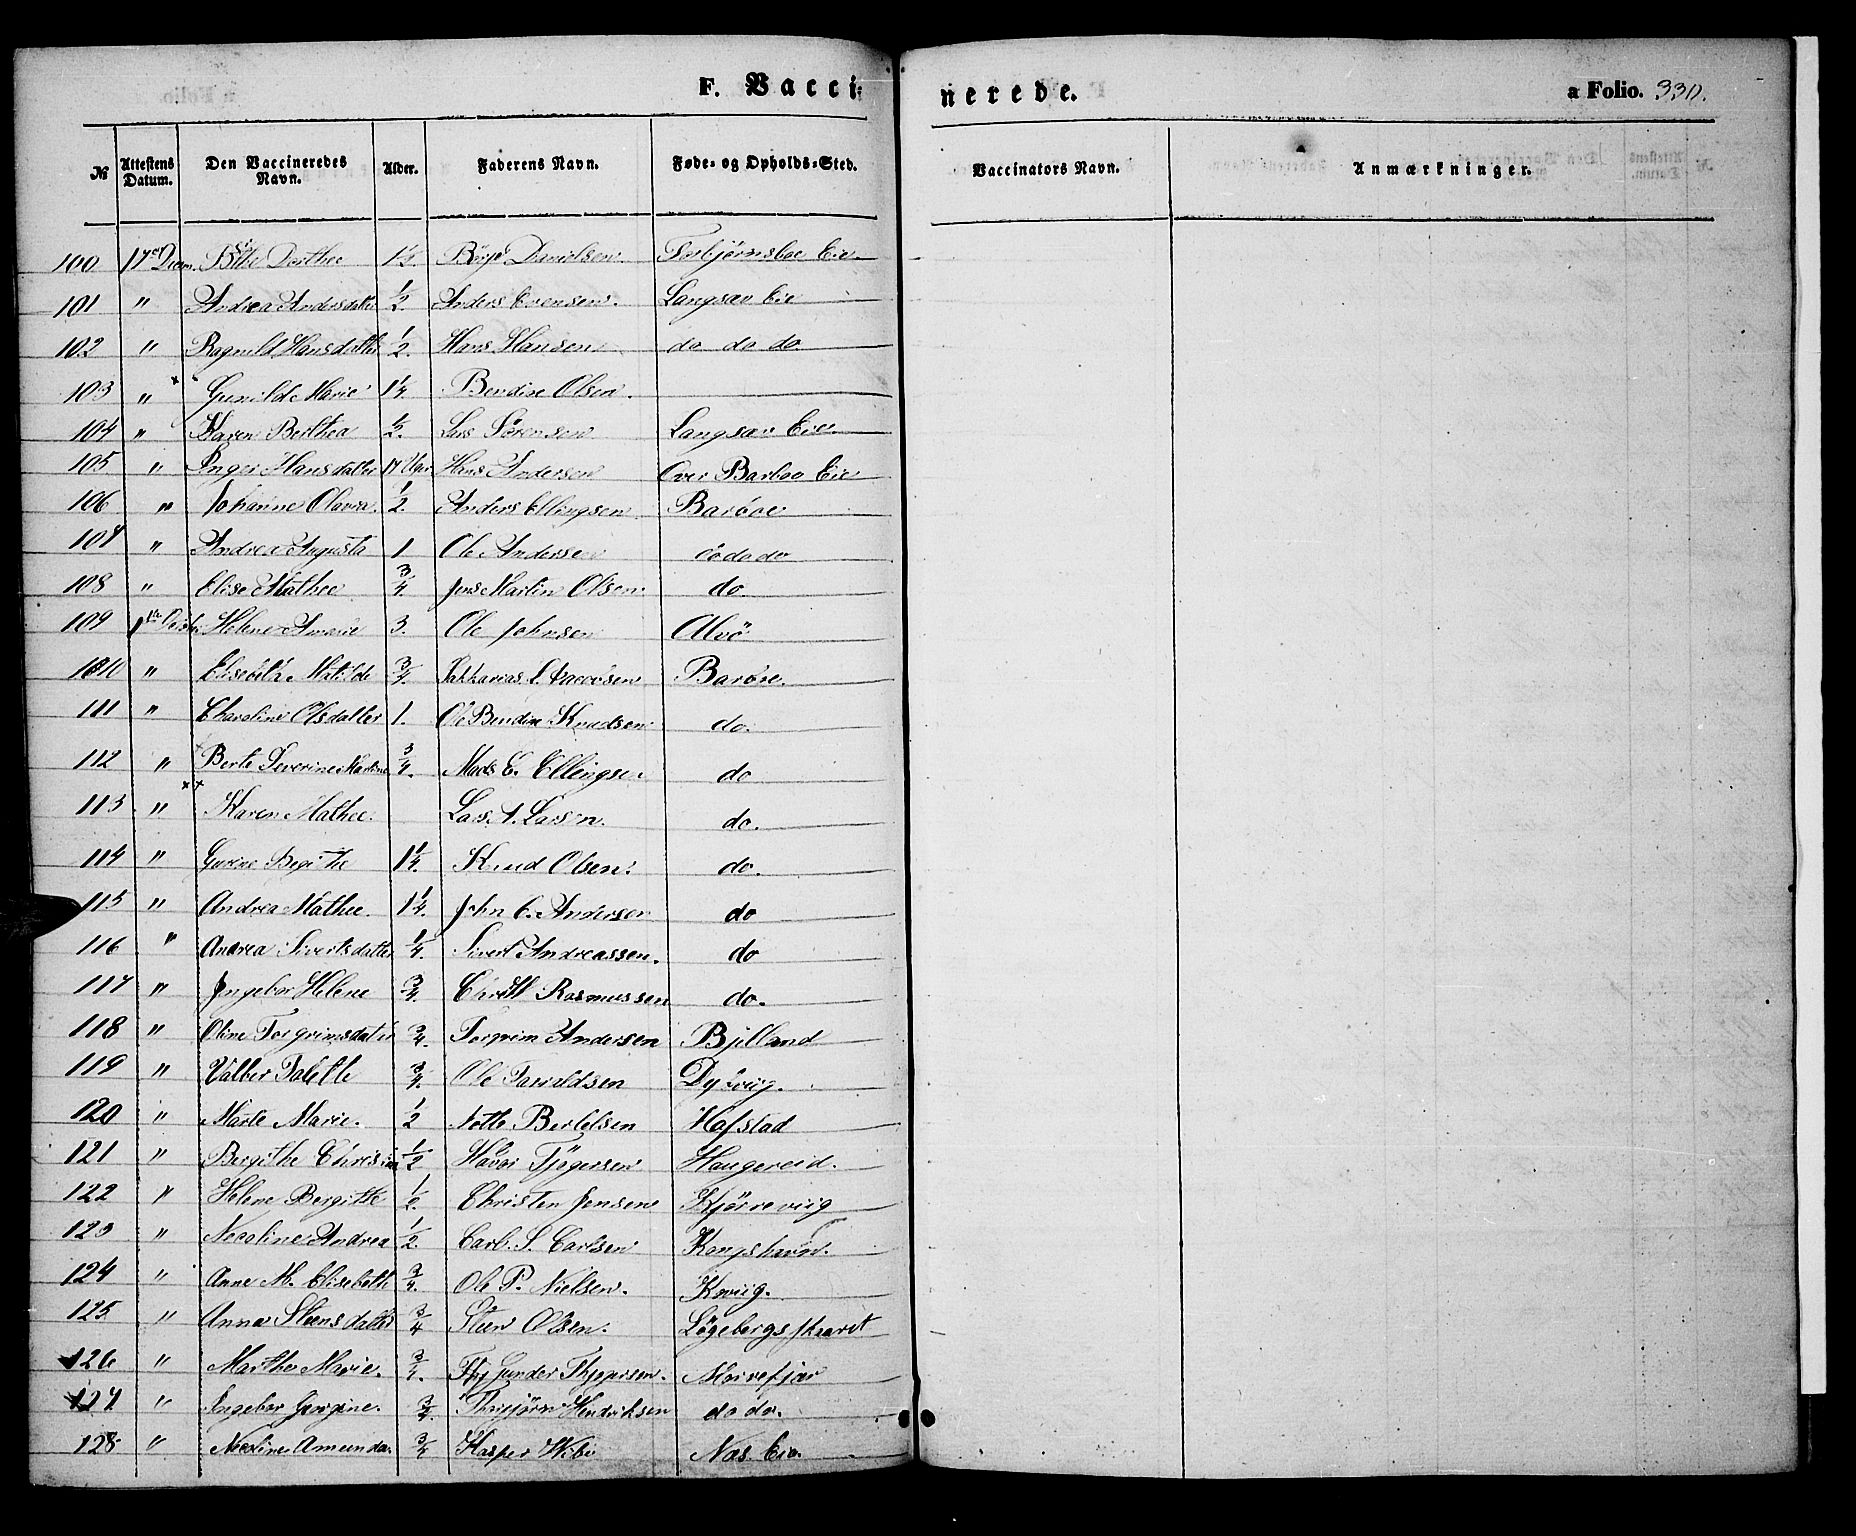 F. Vaccinerede. a Folio. 330.
№ Attestens Datum. Den Vaccineredes Navn. Alder. Faderens Navn. Føde- og Opholds-Sted. Vaccinators Navn. Anmærkninger.
100 17de Dorthee Børje Davidsen Torbjørnsboe Eie
101 " Andrea Andersdatter 1/2 Anders Evensen. Langsæv Eie
102 " Ragnild Hansdatter 1/2. Hans Hansen do do do
103 " Gunild Marie 1 1/4 Bendix Olsen.
104 " Karen Berthea 1/2. Lars Sörensen Langsæv Eie
105 " Inger Hansdatter 17 Uger Hans Andersen Over Barboe Eie
106 " Johanne Olava. 1/2. Anders Ellingsen Barøoe
107 " Andrea Augusta 1 Ole Andersen do do do
108 " Elise Mathee 3/4 Jens Martin Olsen do.
109 Helene Amalie 3. Ole Johnsen Alvö
110 " Elisebeth Matilde 3/4. Sakkarias Barøoe.
111 " Charoline Olsdatter 1. Ole Bendix Knudsen do.
112 " Berte Severine Martine 3/4. Mads E. Ellingsen do
113 " Karen Mathee. Lars A. Larsen. do.
114 " Gurine Begithe 1 1/4. Knud Olsen. do.
115 " Andrea Mathee. 1 1/4. John C. Andersen do
116 " Andrea Sivertsdatter 1/4. Sivert Andreassen. do
117 " Ingebor Helene 3/4. Rasmussen do.
118 " Oline Torgrimsdatter 3/4. Torgrim Andersen Bjelland
119 " Valber Talette 3/4. Ole Tarildsen Dybviig.
120 " Marte Marie. 1/2 Notto Bertelsen Hafstad
121 " Bergithe 1/2 Haavor Tjøgersen Haugereid.
122 " Helene Bergitte 1/2. Christen Jensen Kjørreviig
123 " Necoline Andrea 1/2. Carl. S. Carlsen Kongshavn.
124 " Anne M. Elisebeth 3/4. Ole P. Nielsen. Kviig.
125 " Anne Steensdatter 3/4 Steen Olsen. Løgebergskaaret
126 " Marthe Marie. 3/4. Gunder Morvefjær
127 " Ingebor Gurgine. 3/4. Thorbjørn Hendriksen do do.
128 " Necoline Amunda. 3/4 Kasper Wibe Næs. Eie.